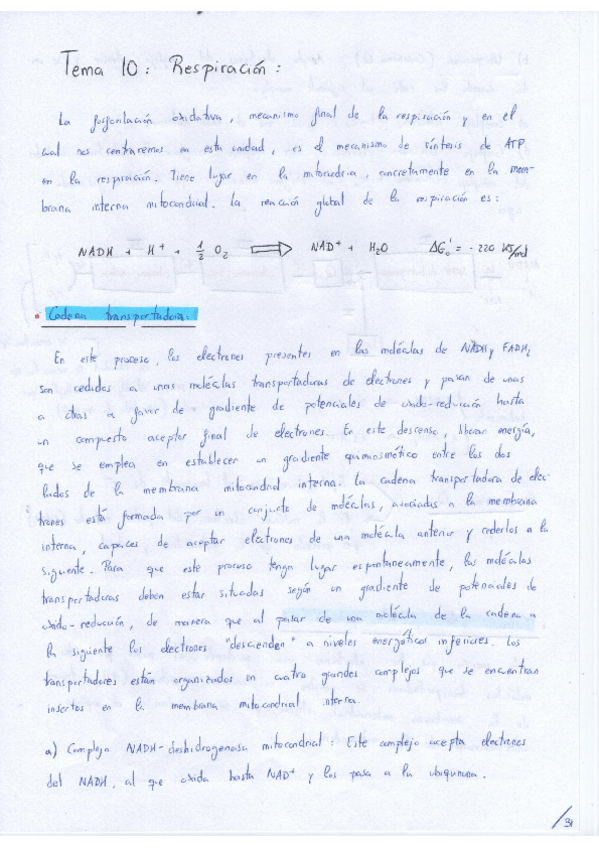 Tema 10: Respiración:
La fosforilación oxidativa, mecanismo final de la respiración y en el
cual nos centraremos en esta unidad, es el mecanismo de síntesis de ATP
en la respiración. Tiene lugar en la mitocondria, concretamente en la mem-
brana interna mitocondrial. La reacción global de la respiración es:
NADH + H+ + 1/2 O2 ⇒ NAD+ + H2O ΔG0' = -220 KJ/mol
• Cadena transportadora:
En este proceso, los electrones presentes en las moléculas de NADH y FADH2
son cedidos a unas moléculas transportadoras de electrones y pasan de unas
a otras a favor de gradiente de potenciales de oxido-reducción hasta
un compuesto aceptor final de electrones. En este descenso, liberan energía,
que se emplea en establecer un gradiente quimiosmótico entre los dos
lados de la membrana mitocondrial interna. La cadena transportadora de elec-
trones está formada por un conjunto de moléculas, asociadas a la membrana
interna, capaces de aceptar electrones de una molécula anterior y cederlos a la
siguiente. Para que este proceso tenga lugar espontaneamente, las moléculas
transportadoras deben estar situadas según un gradiente de potenciales de
oxido-reducción, de manera que al pasar de una molécula de la cadena a
la siguiente los electrones "descienden" a niveles energéticos inferiores. Los
transportadores están organizados en cuatro grandes complejos que se encuentran
insertos en la membrana mitocondrial interna.
a) Complejo NADH-deshidrogenasa mitocondrial: Este complejo acepta electrones
del NADH, al que oxida hasta NAD+ y los pasa a la ubiquinona.
/31